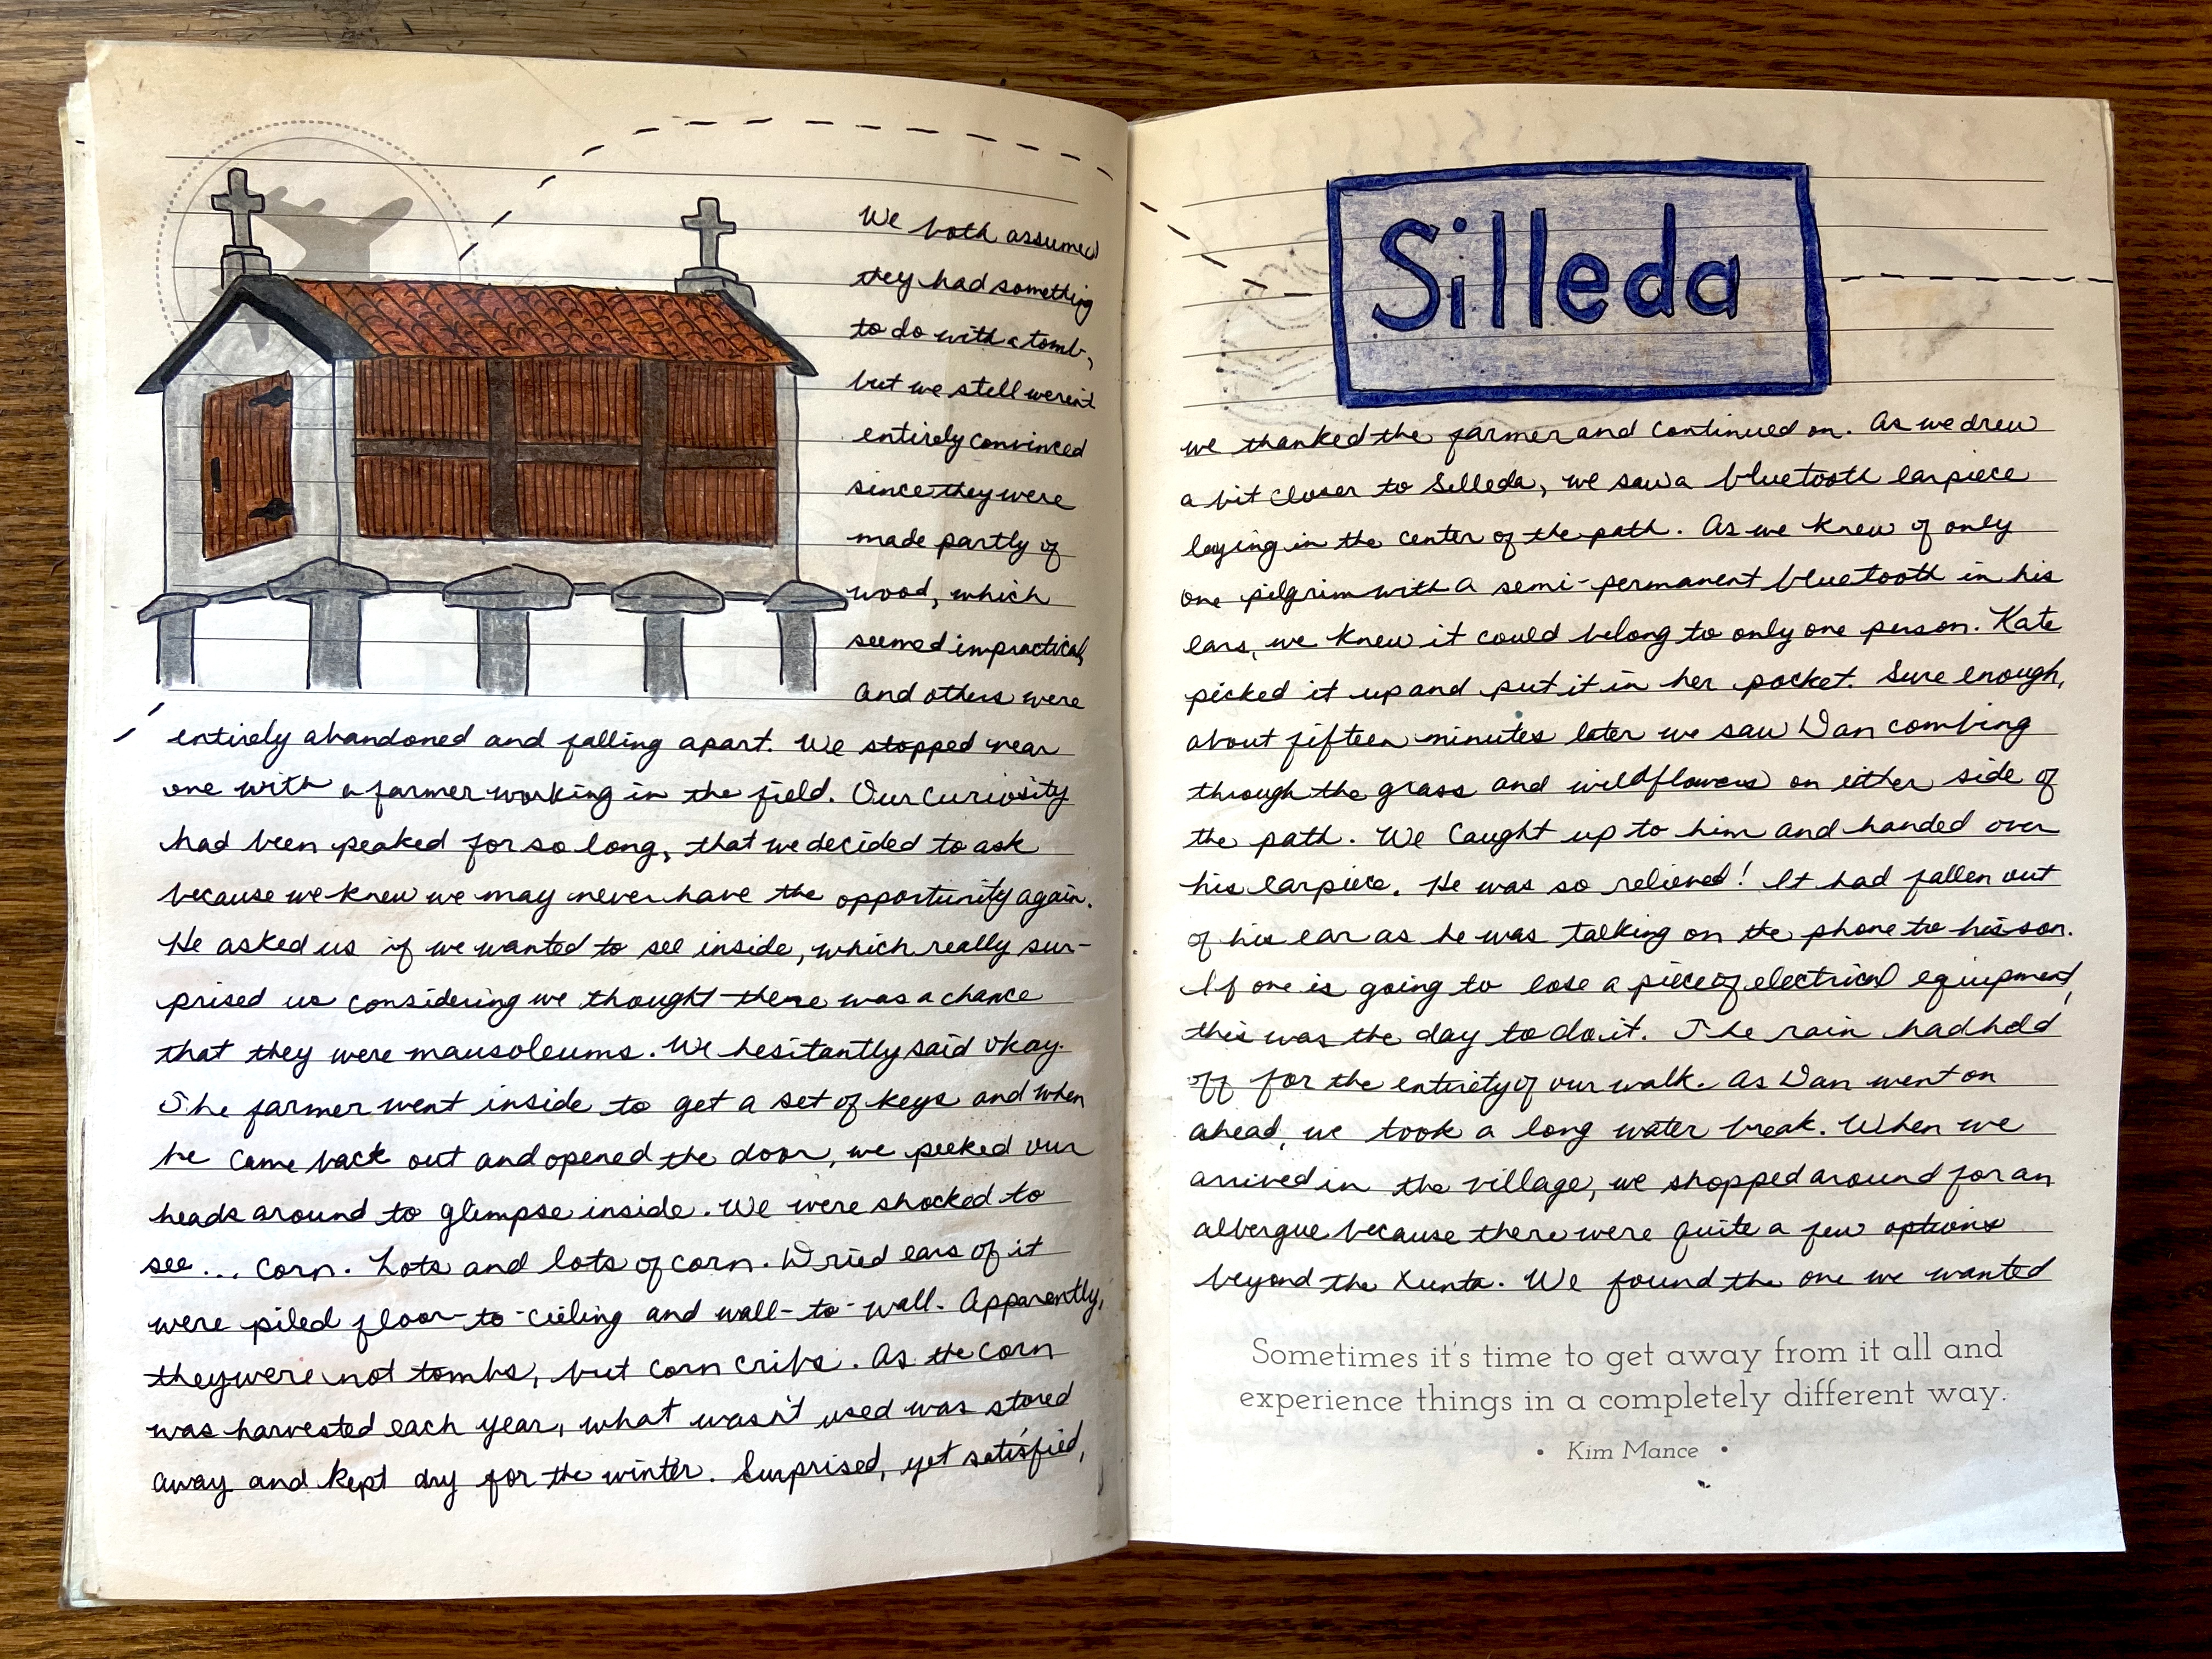 We both assumed
they had something
to do with a tomb,
but we still weren't
entirely convinced
since they were
made partly of
wood, which
seemed impractical,
and others were
entirely abandoned and falling apart. We stopped near
one with a farmer working in the field. Our curiosity
had been peaked for so long, that we decided to ask
because we knew we may never have the opportunity again.
He asked us if we wanted to see inside, which really sur-
prised us considering we thought there was a chance
that they were mausoleums. We hesitantly said okay.
The farmer went inside to get a set of keys and when
he came back out and opened the door, we peeked our
heads around to glimpse inside. We were shocked to
see... corn. Lots and lots of corn. Dried ears of it
were piled floor-to-cieling and wall-to-wall. Apparently,
they were not tombs, but corn cribs. As the corn
was harvested each year, what wasn't used was stored
away and kept dry for the winter. Surprised, yet satisfied,
Silleda
we thanked the farmer and continued on. As we drew
a bit closer to Silleda, we saw a bluetooth earpiece
laying in the center of the path. As we knew of only
one pilgrim with a semi-permanent bluetooth in his
ears, we knew it could belong to only one person. Kate
picked it up and put it in her pocket. Sure enough,
about fifteen minutes later we saw Dan combing
through the grass and wildflowers on either side of
the path. We caught up to him and handed over
his earpiece. He was so relieved! It had fallen out
of his ear as he was talking on the phone to his son.
If one is going to lose a piece of electrical equipment,
this was the day to do it. The rain had held
off for the entirety of our walk. As Dan went on
ahead, we took a long water break. When we
arrived in the village, we shopped around for an
albergue because there were quite a few options
beyond the Xunta. We found the one we wanted
Sometimes it's time to get away from it all and
experience things in a completely different way.
• Kim Mance •